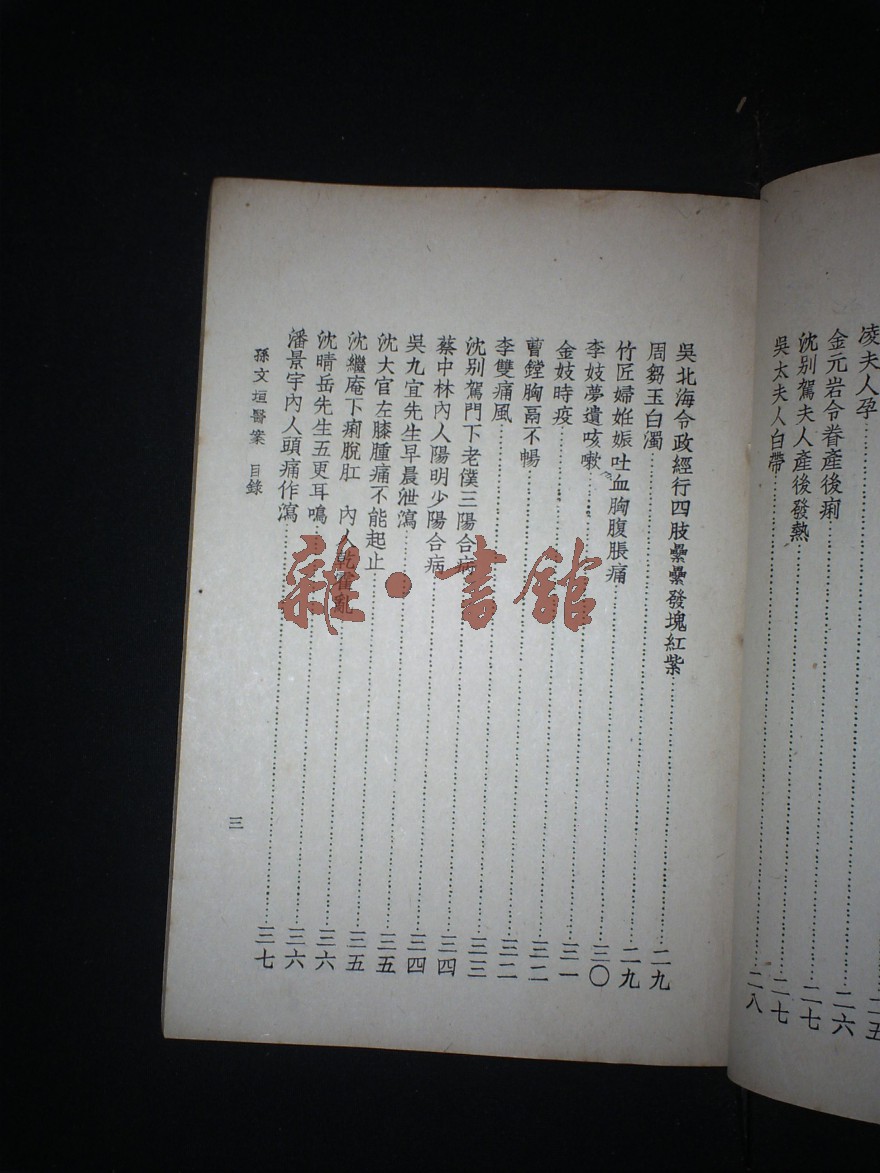 二五
凌夫人孕……二六
金元岩令眷產後痢……二七
沈别駕夫人產後發熱……二七
吳太夫人白帶……二八
吳北海令政經行四肢纍纍發塊紅紫……二九
周芻玉白濁……二九
竹匠婦妊娠吐血胸腹脹痛……三〇
李妓夢遺咳嗽……三一
金妓時疫……三二
曹鏜胸鬲不暢……三二
李雙痛風……三三
沈别駕門下老僕三陽合病……三四
蔡中林內人陽明少陽合病……三四
吳九宜先生早晨泄瀉……三五
沈大官左膝腫痛不能起止……三五
沈繼庵下痢脫肛　內人乾霍亂……三六
沈晴岳先生五更耳鳴……三六
潘景宇內人頭痛作瀉……三七
孫文垣醫案　目錄
三
雜·書館